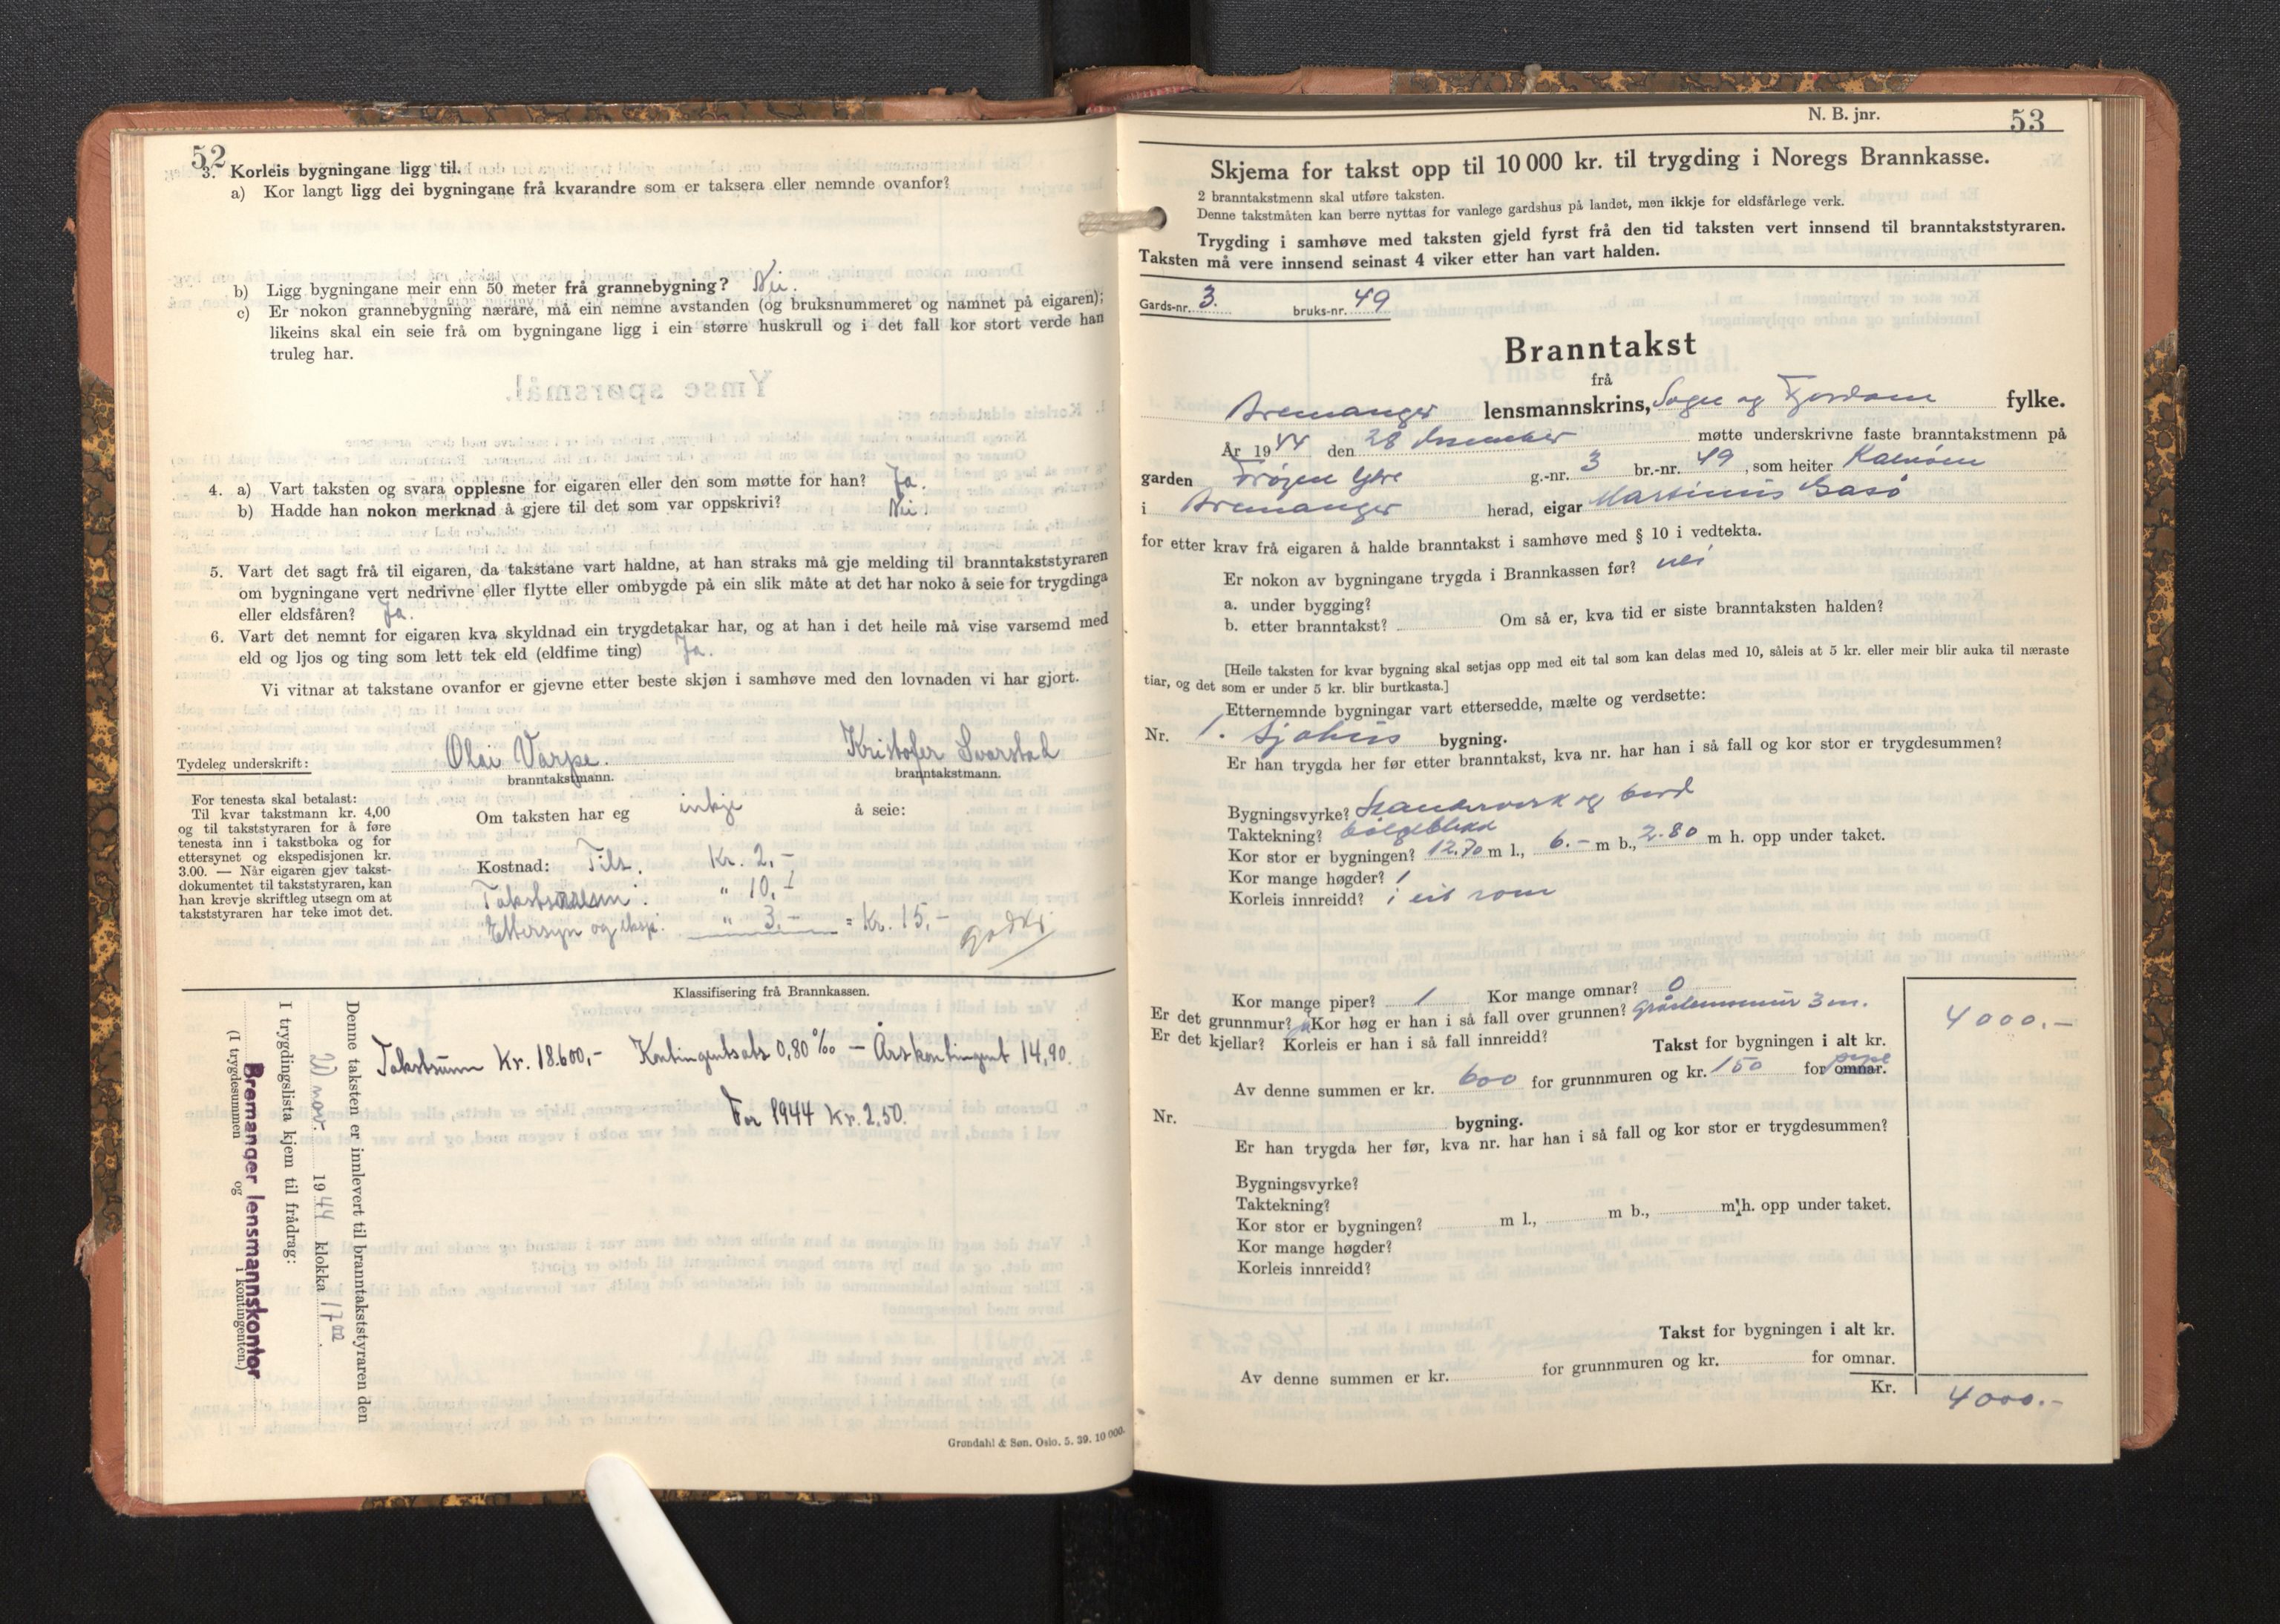 52
3. Korleis bygningane ligg til.
a) Kor langt ligg dei bygningane frå kvarandre som er taksera eller nemnde ovanfor?
b) Ligg bygningane meir enn 50 meter frå grannebygning? Nei.
c) Er nokon grannebygning nærare, må ein nemne avstanden (og bruksnummeret og namnet på eigaren);
likeins skal ein seie frå om bygningane ligg i ein større huskrull og i det fall kor stort verde han
truleg har.
4. a) Vart taksten og svara opplesne for eigaren eller den som møtte for han? Ja.
b) Hadde han nokon merknad å gjere til det som var oppskrivi? Nei.
5. Vart det sagt frå til eigaren, da takstane vart haldne, at han straks må gje melding til branntakststyraren
om bygningane vert nedrivne eller flytte eller ombygde på ein slik måte at det har noko å seie for trygdinga
eller eldsfåren? Ja.
6. Vart det nemnt for eigaren kva skyldnad ein trygdetakar har, og at han i det heile må vise varsemd med
eld og ljos og ting som lett tek eld (eldfime ting) Ja.
Vi vitnar at takstane ovanfor er gjevne etter beste skjøn i samhøve med den lovnaden vi har gjort.
Tydeleg underskrift: Olai Varpe. Kristofer Svarstad
branntakstmann. branntakstmann.
For tenesta skal betalast:
Til kvar takstmann kr. 4,00
og til takststyraren for å føre
tenesta inn i takstboka og for
ettersynet og ekspedisjonen kr.
3.00. — Når eigaren gjev takst-
dokumentet til takststyraren, kan
han krevje skriftleg utsegn om at
takststyraren har teke imot det.
Om taksten har eg inkje å seie:
Kostnad: Tils. Kr. 2,-
" 10,-
Ettersyn og eksp. " 3.- = Kr. 15,-
godkj.
Klassifisering frå Brannkassen.
Takstsum Kr. 18.600,- Kontingentsats 0,80 ‰ - Årskontingent 14,90.
For 1944 Kr. 2,50.
Denne taksten er innlevert til branntakststyraren den
20 nov. 1944 klokka 17 00.
I trygdingslista kjem til frådrag:
Bremanger lensmannskontor
(I trygdesummen og i kontingenten.)
Grøndahl & Søn. Oslo. 5. 39. 10 000.
N. B. jnr.
53
Skjema for takst opp til 10 000 kr. til trygding i Noregs Brannkasse.
2 branntakstmenn skal utføre taksten.
Denne takstmåten kan berre nyttas for vanlege gardshus på landet, men ikkje for eldsfårlege verk.
Trygding i samhøve med taksten gjeld fyrst frå den tid taksten vert innsend til branntakststyraren.
Taksten må vere innsend seinast 4 viker etter han vart halden.
Gards-nr. 3. bruks-nr. 49
Branntakst
frå
Bremanger lensmannskrins, Sogn og Fjordane fylke.
År 1944 den 28 desember møtte underskrivne faste branntakstmenn på
garden Frøyen Ytre g.-nr. 3 br.-nr. 49, som heiter
i Bremanger herad, eigar Martinus Gasø
for etter krav frå eigaren å halde branntakst i samhøve med § 10 i vedtekta.
Er nokon av bygningane trygda i Brannkassen før? nei
a. under bygging?
b. etter branntakst? Om så er, kva tid er siste branntaksten halden?
[Heile taksten for kvar bygning skal setjas opp med eit tal som kan delas med 10, såleis at 5 kr. eller meir blir auka til næraste
tiar, og det som er under 5 kr. blir burtkasta.]
Etternemnde bygningar vart ettersedde, mælte og verdsette:
Nr. 1. Sjøhus bygning.
Er han trygda her før etter branntakst, kva nr. har han i så fall og kor stor er trygdesummen?
Bygningsvyrke? Standerverk og bord
Taktekning? bølgeblekk
Kor stor er bygningen? 12.70 m l., 6.- m b., 2.80 m h. opp under taket.
Kor mange høgder? 1
Korleis innreidd? i eit rom
Kor mange piper? 1 Kor mange omnar? 0
Er det grunnmur? ja Kor høg er han i så fall over grunnen? gråsteinsmur 3 m.
Er det kjellar? Korleis er han i så fall innreidd?
Takst for bygningen i alt kr. 4000.-
Av denne summen er kr. 600 for grunnmuren og kr. 150 for omnar. pipe
Nr. bygning.
Er han trygda her før, kva nr. har han i så fall og kor stor er trygdesummen?
Bygningsvyrke?
Taktekning?
Kor stor er bygningen? m l., m b., m h. opp under taket.
Kor mange høgder?
Korleis innreidd?
Takst for bygningen i alt kr.
Av denne summen er kr. for grunnmuren og kr. for omnar.
Kr. 4000.-